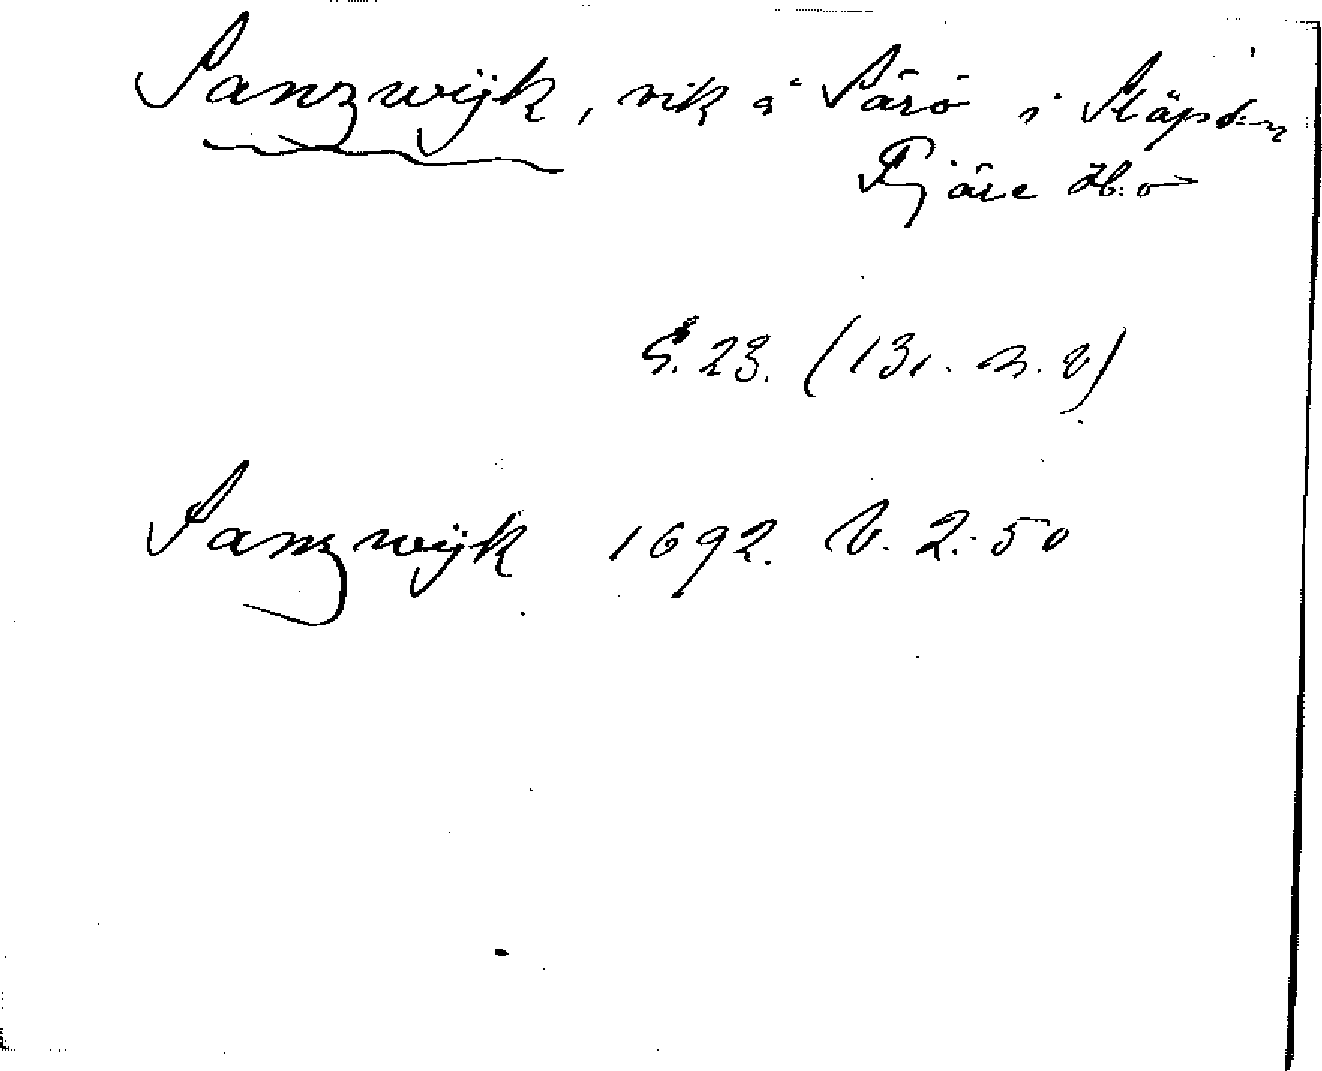 Sanzwijk, vik å Särö i Släps sn
Fjäre Hd
S. 23. (131. n. 2)
Sanzwijk 1692. b. 2: 50